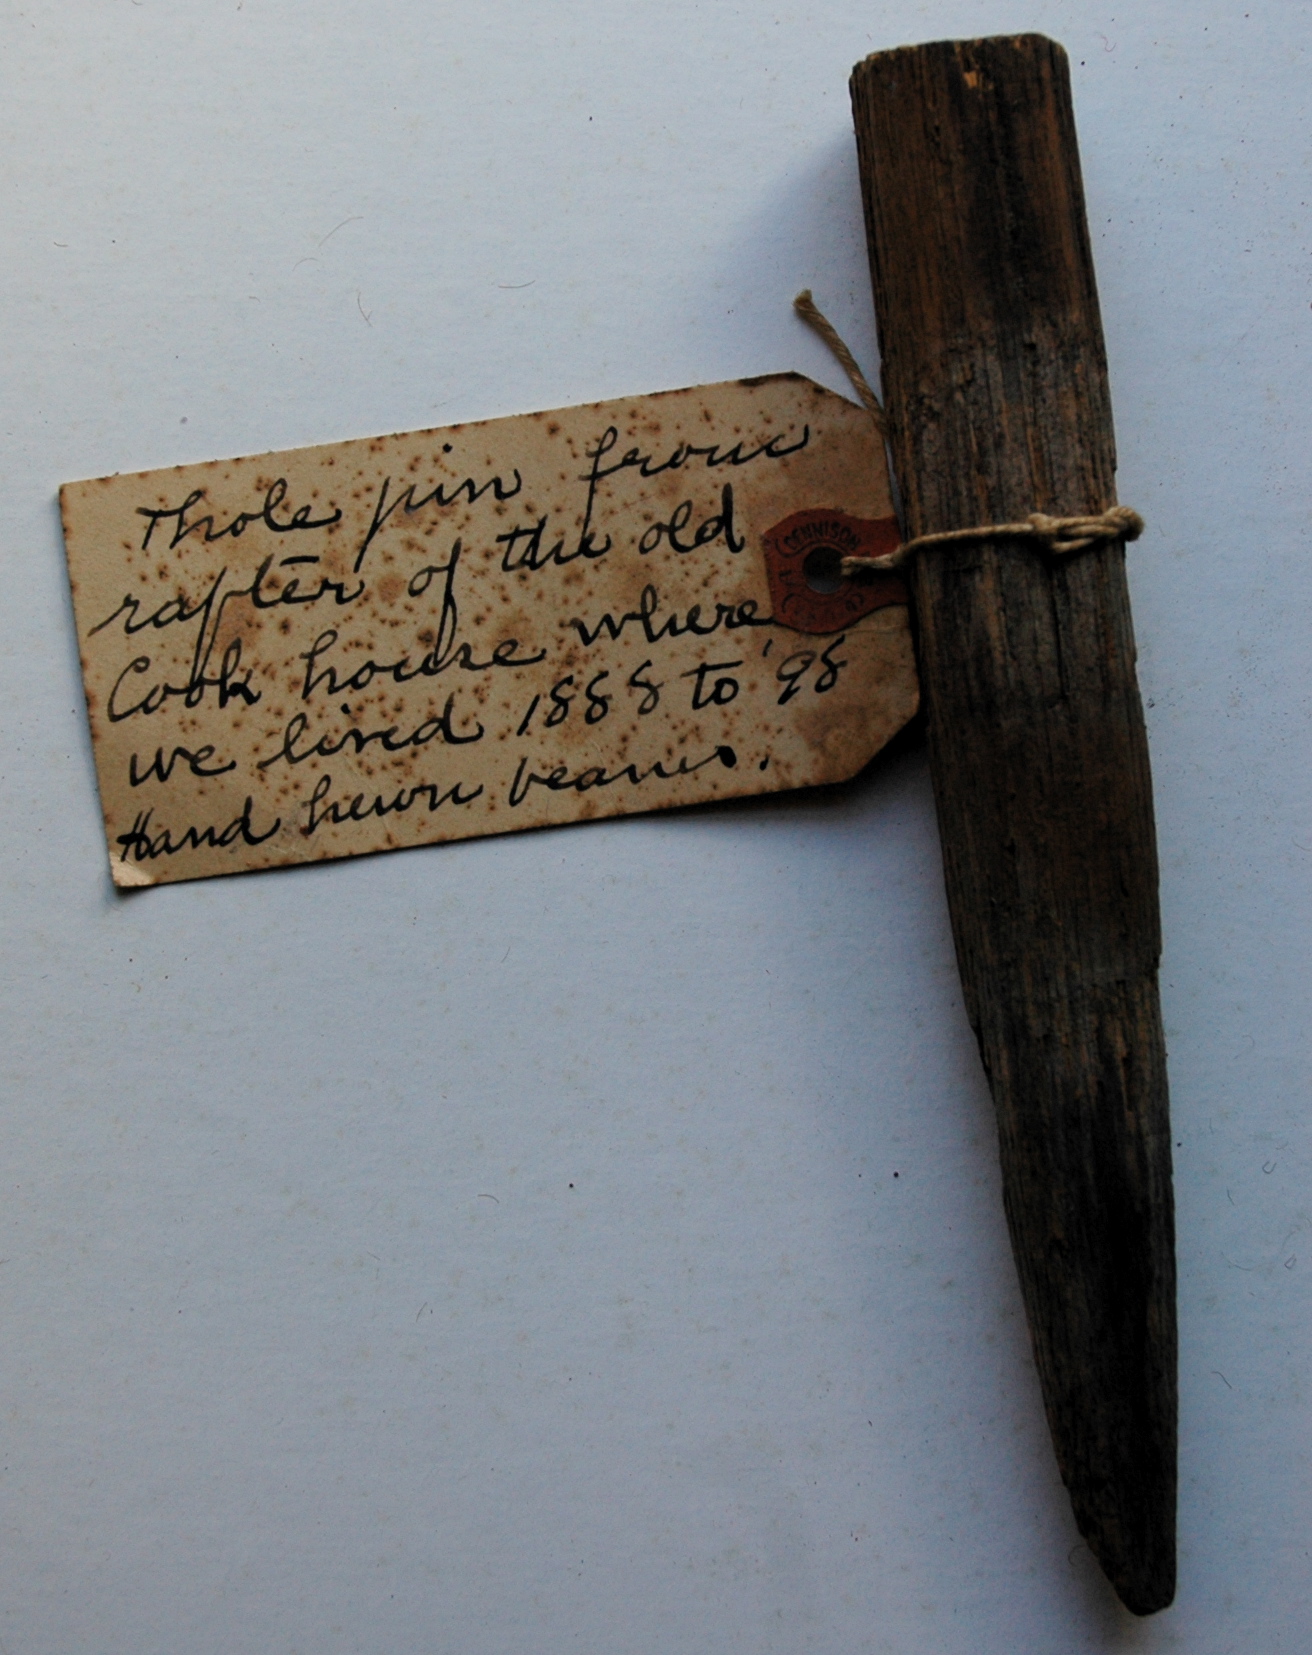 Thole pin from
rafter of the old
Cook house where
we lived 1888 to '98
Hand hewn beams.
DENNISON